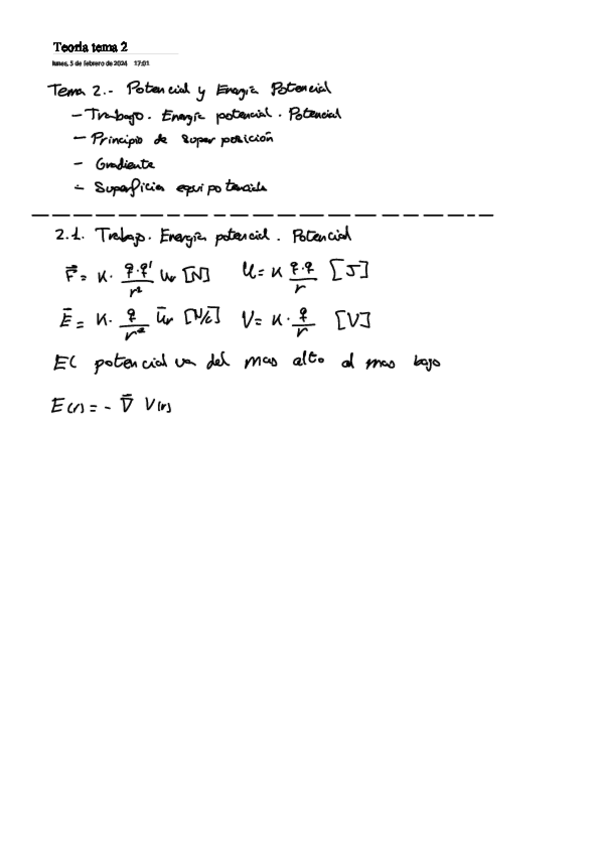 Teoría tema 2
lunes, 5 de febrero de 2024 17:01
Tema 2.- Potencial y Energía Potencial
- Trabajo. Energía potencial. Potencial
- Principio de superposición
- Gradiente
- Superficies equipotenciales
2.1. Trabajo. Energía potencial. Potencial
F⃗ = K · q·q'/r² ur [N] U = K q·q/r [J]
E⃗ = K · q/r² u⃗r [N/C] V = K · q/r [V]
El potencial va del mas alto al mas bajo
E(r) = - ∇⃗ V(r)